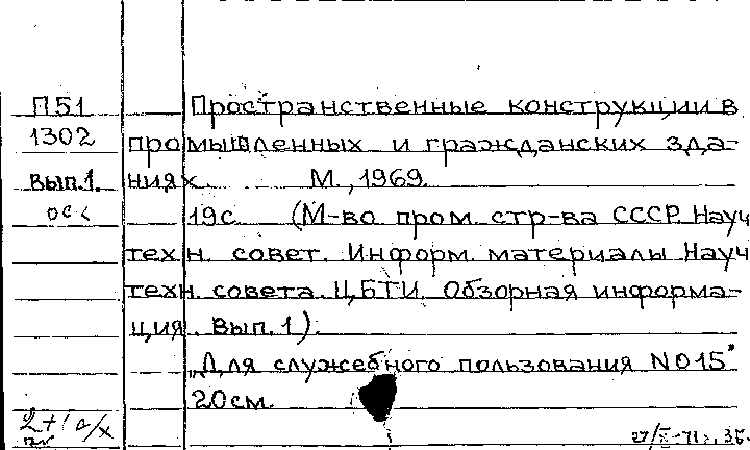 П51 Пространственные конструкции в
1302 промышленных и гражданских зда-
Вып.1. ниях. М., 1969.
19с. (М-во пром. стр-ва СССР. Науч
техн. совет. Информ. материалы Науч
техн. совета. ЦБТИ. Обзорная информа-
ция. Вып. 1).
„Для служебного пользования N015"
20см.
2+1а/х